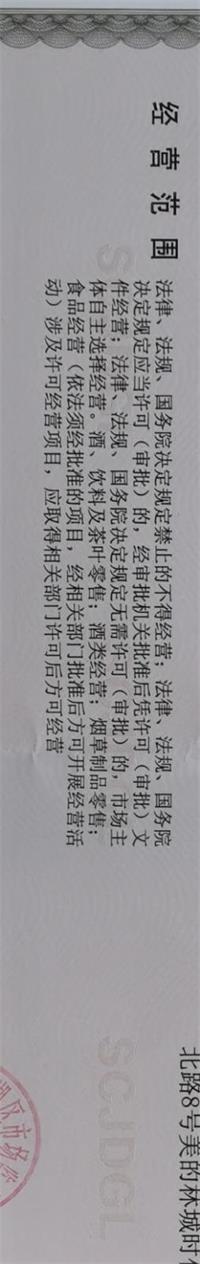 北路8号美的林城时
经营范围
法律、法规、国务院决定规定禁止的不得经营；法律、法规、国务院
决定规定应当许可（审批）的，经审批机关批准后凭许可（审批）文
件经营；法律、法规、国务院决定规定无需许可（审批）的，市场主
体自主选择经营。酒、饮料及茶叶零售；酒类经营；烟草制品零售；
食品经营（依法须经批准的项目，经相关部门批准后方可开展经营活
动）涉及许可经营项目，应取得相关部门许可后方可经营
SCJDGL
区市场